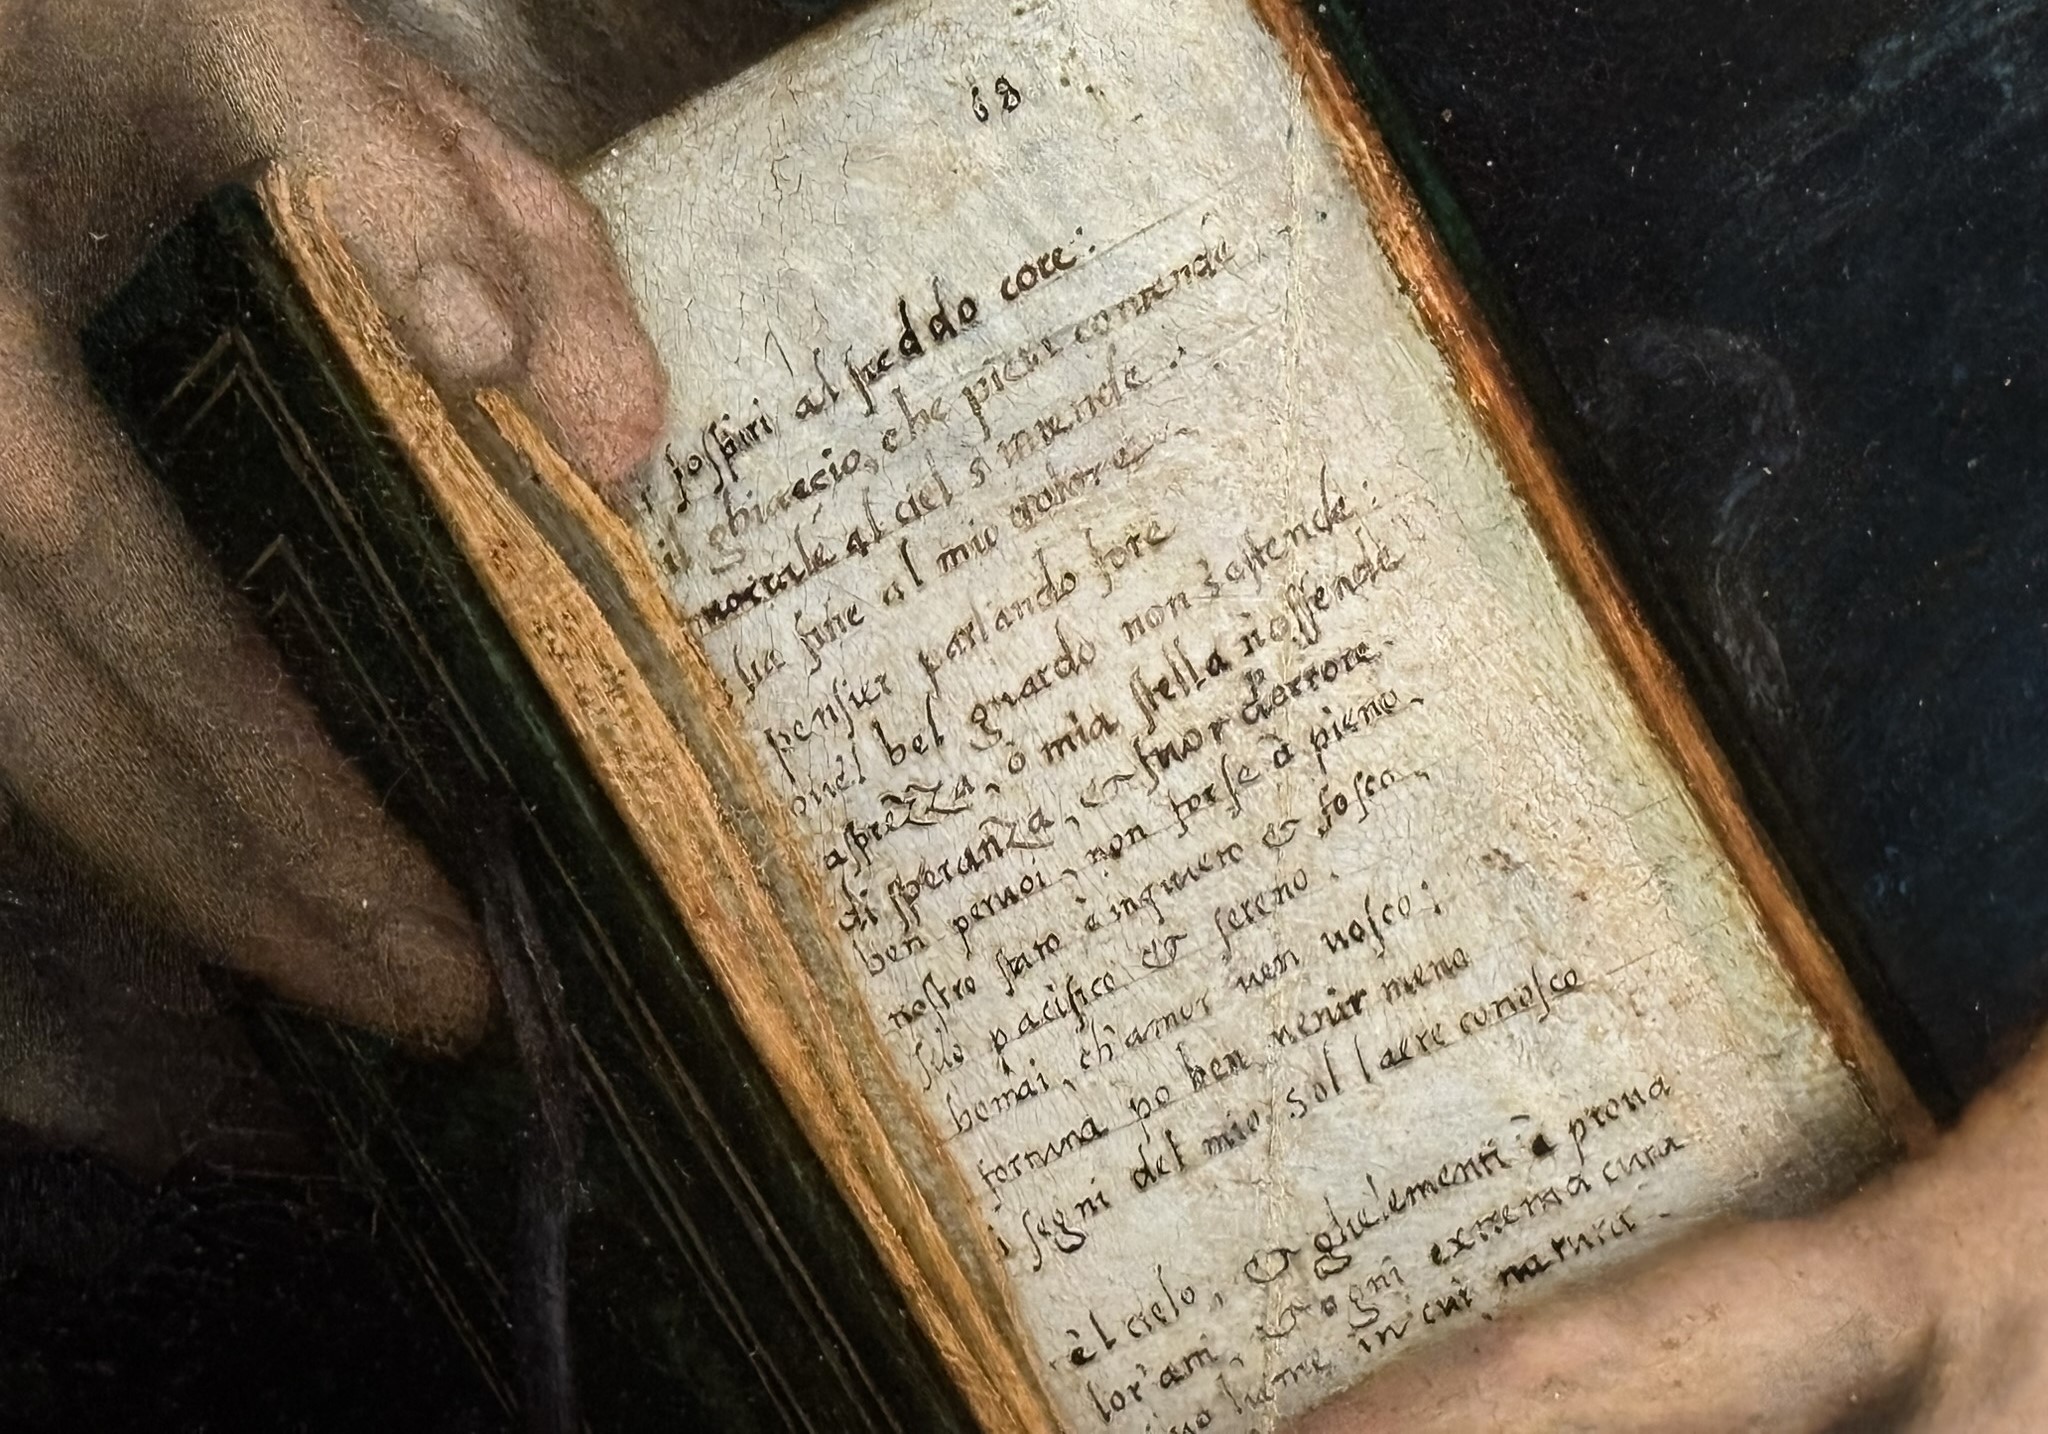 68
sospiri al freddo core:
il ghiaccio, che pietà contende
mortale al ciel s'intende:
ha fine al mio dolore
pensier parlando fore
bel guardo non s'estende:
asprezza, ò mia stella n'offende
di speranza, & fuor d'errore.
ben peruoi, non forse à pieno,
nostro stato è inquieto & fosco,
suo pacifico & sereno.
homai, ch'amor uen uosco:
fortuna po ben uenir meno
i segni del mio sol l'aere conosco
è'l cielo, & glielementi à proua
lor'arti, & ogni extrema cura
lume in cui natura